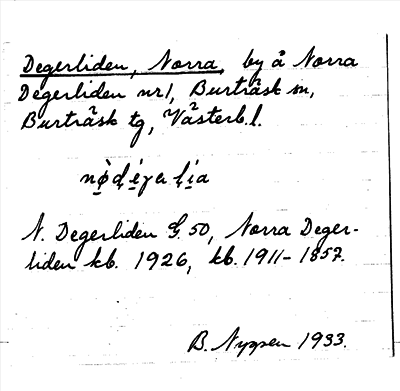 Degerliden, Norra, by å Norra
Degerliden nr 1, Burträsk sn,
Burträsk tg, Västerb. l.
N. Degerliden G. 50, Norra Deger-
liden kb. 1926, kb. 1911-1857.
B. Nyssen 1933.